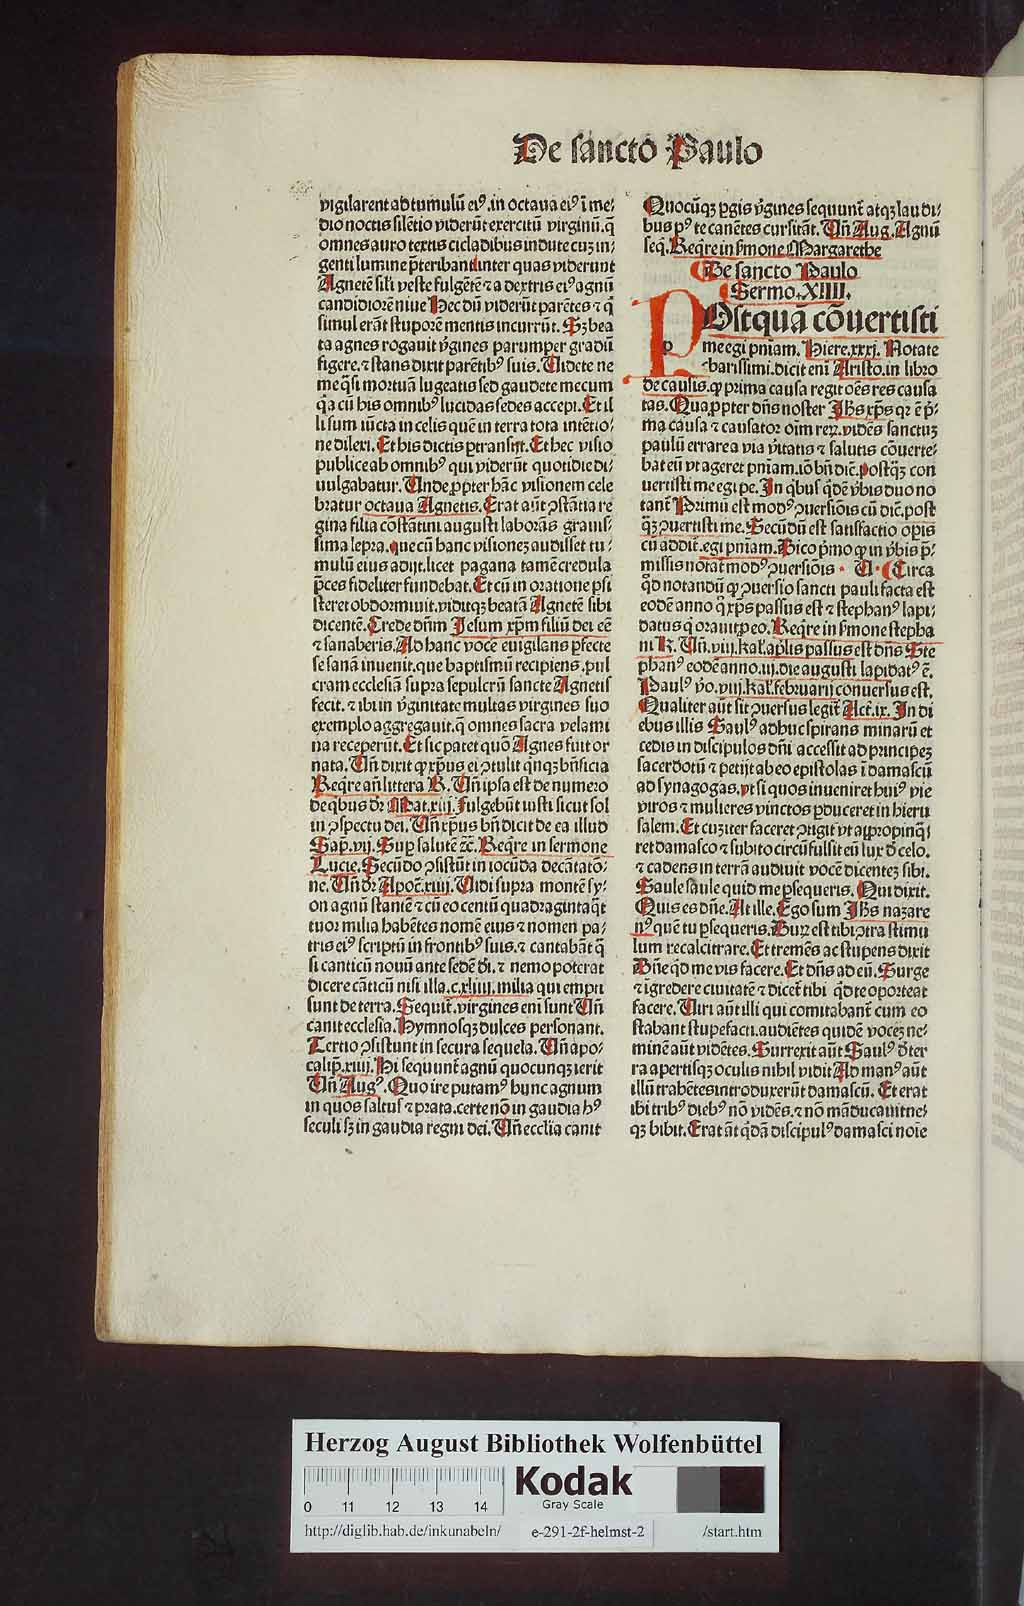 De sancto Paulo
vigilarent ad tumulū eiꝰ. in octaua eiꝰ ī me⸗
dio noctis silētio viderūt exercitū virginū. q̄
omnes auro textis cicladibus indute cuz in⸗
genti lumine p̄teribant inter quas viderunt
Agnetē sili veste fulgētē ⁊ a dextris eiꝰ agnū
candidiorē niue Hec dū viderūt parētes ⁊ q̄
simul erāt stuporē mentis incurrūt. Sz bea
ta agnes rogauit v̄gines parumper gradū
figere. ⁊ stans dixit parētibꝰ suis. Uidete ne
me q̄si mortuā lugeatis sed gaudete mecum
q̄a cū his omnibꝰ lucidas sedes accepi. Et il
li sum iūcta in celis quē in terra tota intētio⸗
ne dilexi. Et his dictis ꝑtransijt. Et hec visio
publice ab omnibꝰ qui viderūt quotidie di⸗
uulgabatur. Unde ꝓpter hāc visionem cele
bratur octaua Agnetis. Erat aūt ꝯstātia re
gina filia cōstātini augusti laborās grauis⸗
sima lepra. que cū hanc visionez audisset tu⸗
mulū eius adijt. licet pagana tamē credula
p̄ces fideliter fundebat. Et cū in oratione ꝑsi
steret obdormiuit. viditqz beatā Agnetē sibi
dicentē. Crede dn̄m Jesum xp̄m filiū dei eē
⁊ sanaberis. Ad hanc vocē euigilans ꝑfecte
se sanā inuenit. que baptismū recipiens, pul
cram ecclesiā supra sepulcrū sancte Agnetis
fecit. ⁊ ibi in v̄ginitate multas virgines suo
exemplo aggregauit. q̄ omnes sacra velami
na receperūt. Et sic patet quō Agnes fuit or
nata. Un̄ dixit ꝙ xp̄us ei ꝯtulit qnqz bn̄ficia
Reqre an̄ littera R. Un̄ ipsa est de numero
de qbus dr̄ Mat. xiij. Fulgebūt iusti sicut sol
in ꝯspectu dei. Un̄ xp̄us bn̄ dicit de ea illud
Sap. vij. Suꝑ salutē ⁊c. Reqre in sermone
Lucie. Secūdo ꝯsistūt in iocūda decātatō⸗
ne. Un̄ dr̄ Apoc. xiiij. Uidi supra montē sy⸗
on agnū stantē ⁊ cū eo centū quadraginta q̄t
tuor milia habētes nomē eius ⁊ nomen pa⸗
tris eiꝰ scriptū in frontibꝰ suis. ⁊ cantabāt q̄
si canticū nouū ante sedē dī. ⁊ nemo poterat
dicere cāticū nisi illa. c.xliiij. milia qui empti
sunt de terra. Sequit̄. virgines enī sunt Un̄
canit ecclesia. Hymnosqz dulces personant.
Tertio ꝯsistunt in secura sequela. Un̄ apo⸗
calip̄. xiiij. Hi sequunt̄ agnū quocunqz ierit
Un̄ Augꝰ. Quo ire putamꝰ hunc agnum
in quos saltus ⁊ prata. certe nō in gaudia hꝰ
seculi sz in gaudia regni dei. Un̄ ecclīa canit
Quocūqz ꝑgis v̄gines sequunt̄ atqz laudi⸗
bus pꝰ te canētes cursitāt. Un̄ Aug. Agnū
seq̄. Reqre in s̄mone Margarethe
De sancto Paulo
Sermo. XIIII.
POstquā cōuertisti
me egi pn̄iam. Hiere. xxxj. Notate
charissimi. dicit enī Aristo. in libro
de causis. ꝙ prima causa regit oēs res causa
tas. Quaꝓpter dn̄s noster Jhs xp̄s qr ē p̄⸗
ma causa ⁊ causator oīm rerꝝ. vidēs sanctuz
paulū errare a via v̄itatis ⁊ salutis cōuerte⸗
bat eū vt ageret pn̄iam. iō bn̄ dic̄. Postq̄z con
uertisti me egi pe. In qbus q̄dē v̄bis duo no
tant̄ Primū est modꝰ ꝯuersiōis cū dic̄. post
q̄z ꝯuertisti me. Secūdū est satisfactio opis
cū addit̄. egi pn̄iam. Dico p̄mo ꝙ in v̄bis p̄⸗
missis notat̄ modꝰ ꝯuersiōis · A · Circa
qd̄ notandū ꝙ ꝯuersio sancti pauli facta est
eodē anno q̄ xp̄s passus est ⁊ stephanꝰ lapi⸗
datus q̄ orauit ꝓ eo. Reqre in s̄mone stepha
ni R. Un̄. viij. kal̄. aplis passus est dn̄s Ste
phanꝰ eodē anno. iij. die augusti lapidatꝰ ē.
Paulꝰ v̄o. viij. kal̄. februarij conuersus est.
Qualiter aūt sit ꝯuersus legit̄ Act̄. ix. In di
ebus illis Saulꝰ adhuc spirans minarū et
cedis in discipulos dn̄i accessit ad principez
sacerdotū ⁊ petijt ab eo epistolas ī damascū
ad synagogas. vt si quos inueniret huiꝰ vie
viros ⁊ mulieres vinctos ꝑduceret in hieru
salem. Et cuz iter faceret ꝯtigit vt appropinq̄⸗
ret damasco ⁊ subito circūfulsit eū lux d̄ celo.
⁊ cadens in terrā audiuit vocē dicentez sibi.
Saule saule quid me ꝑsequeris. Qui dixit.
Quis es dn̄e. At ille. Ego sum Jhs nazare
nꝰ quē tu ꝑsequeris. Durꝝ est tibi ꝯtra stimu
lum recalcitrare. Et tremēs ac stupens dixit
Dn̄e qd̄ me vis facere. Et dn̄s ad eū. Surge
⁊ ingredere ciuitatē ⁊ dicet̄ tibi qd̄ te oporteat
facere. Uiri aūt illi qui comitabant̄ cum eo
stabant stupefacti. audiētes quidē vocez ne⸗
minē aūt vidētes. Surrexit aūt Saulꝰ d̄ ter
ra apertisqz oculis nihil vidit Ad manꝰ aūt
illū trahētes introduxerūt damascū. Et erat
ibi tribꝰ diebꝰ nō vidēs. ⁊ nō māducauit ne⸗
qz bibit. Erat āt q̄dā discipulꝰ damasci noīe
Herzog August Bibliothek Wolfenbüttel
Kodak
Gray Scale
0 11 12 13 14
http://diglib.hab.de/inkunabeln/ e-291-2f-helmst-2 /start.htm